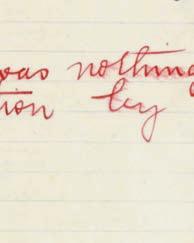 was nothing
tion by